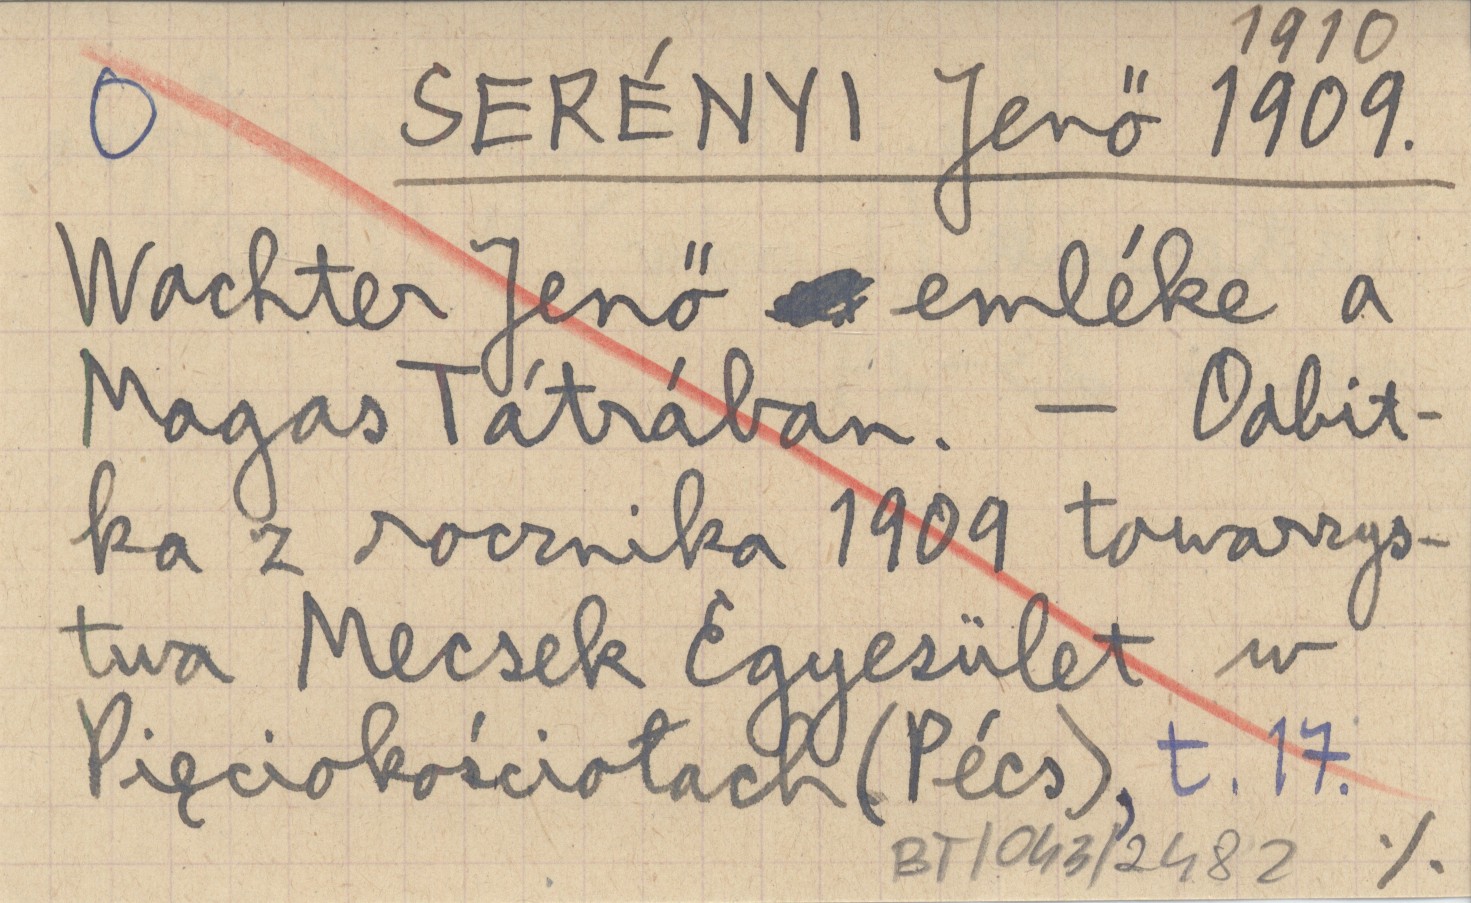 1910
O SERÉNYI Jenő 1909.
Wachter Jenő emléke a
Magas Tátrában. — Odbit-
ka z rocznika 1909 towarzys-
twa Mecsek Egyesület w
Pięciokościołach (Pécs), t. 17.
BT/043/2482 ·/.